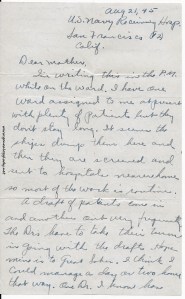 Aug 21, 45
U.S. Navy Receiving Hosp.
San Francisco
Calif.
Dear mother,
I'm writing this in the P.M.
while on the ward. I have one
ward assigned to me at present
with plenty of patients but they
don't stay long. It seems the
ships dump them here and
then they are screened and
sent to hospitals
so most of the work is routine.
A draft of patients came in
and another out very
The Drs have to take their turns
in going with the drafts. Hope
mine is to Great Lakes. I think I
could manage a day or two home
that way. One Dr. I know